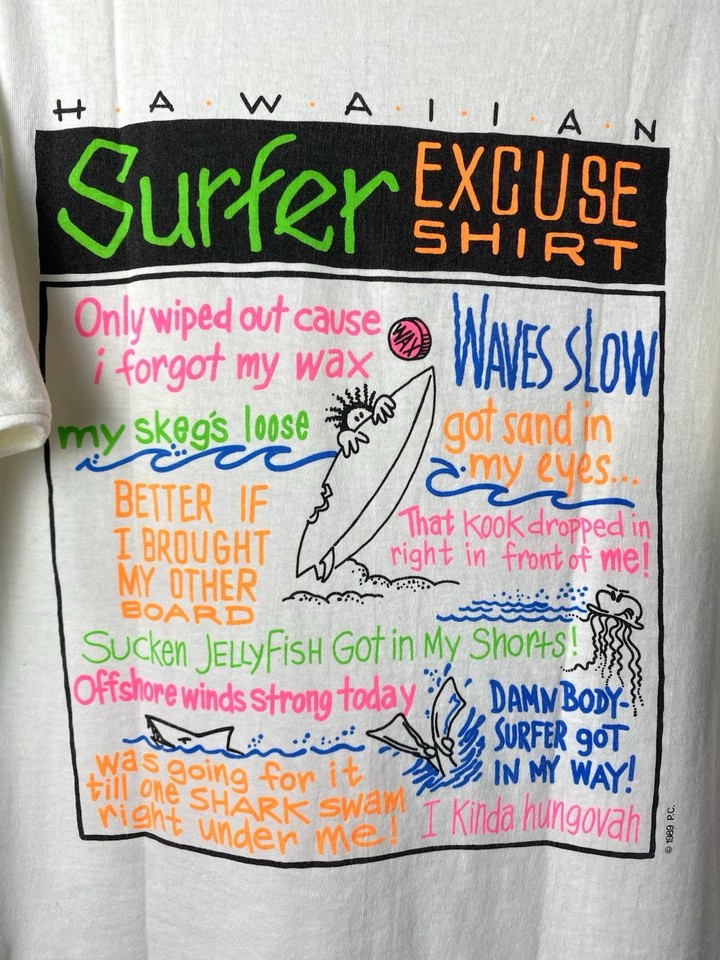 H·A·W·A·I·I·A·N
Surfer EXCUSE
SHIRT
Only wiped out cause
i forgot my wax
WAX
WAVES SLOW
my skeg's loose
got sand in
my eyes...
BETTER IF
I BROUGHT
MY OTHER
BOARD
That kook dropped in
right in front of me!
Sucken JELLyFiSH Got in My Shorts!
Offshore winds strong today
DAMN BODY-
SURFER goT
IN MY WAY!
was going for it
till one SHARK swam
right under me!
I kinda hungovah
© 1989 P.C.